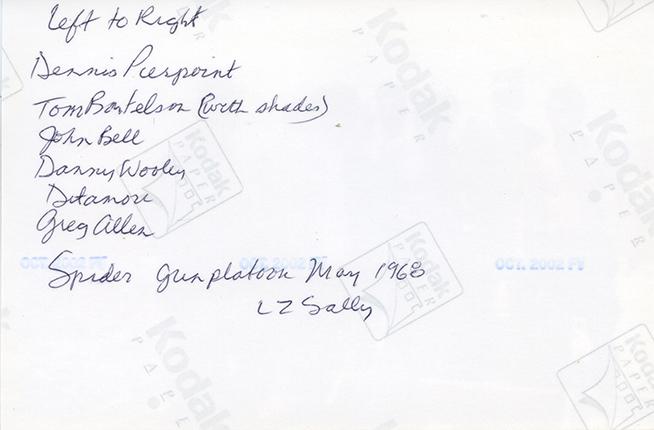 Left to Right
Dennis Pierpoint
Tom Bartelson (with shades)
John Bell
Danny Wooley
Ditamore
Greg Allen
OCT. 2002 FY
OCT. 2002 FY
OCT. 2002 FY
Spider gunplatoon May 1968
LZ Sally
Kodak
PAPER
Kodak
PAPER
Kodak
PAPER
Kodak
PAPER
Kodak
PAPER
Kodak
PAPER